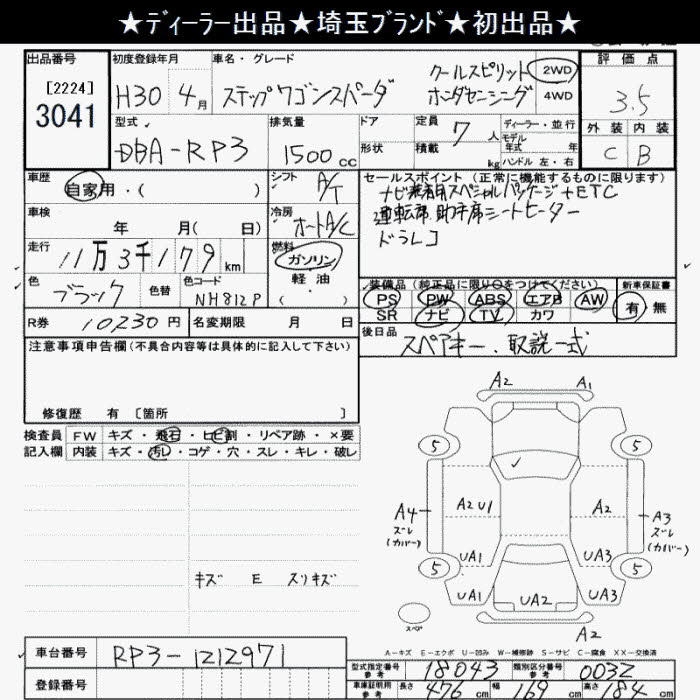 ★ディーラー出品★埼玉ブランド★初出品★
出品番号
[2224]
3041
初度登録年月
H30 4月
車名・グレード
ステップワゴンスパーダ クールスピリット ホンダセンシング
2WD
4WD
評価点
3.5
外装 内装
C B
型式
DBA-RP3
排気量
1500cc
ドア
形状
定員 7人
積載 kg
ディーラー・並行
モデル年式 年
ハンドル 左・右
車歴
自家用・( )
シフト
A/T
車検
年 月( 日)
冷房
オートA/C
走行
11万3千179km
燃料
ガソリン
軽油
( )
色
ブラック
色替
色コード
NH812P
R券 10230円
名変期限 月 日
セールスポイント (正常に機能するものに限ります)
ナビ装着用スペシャルパッケージ+ETC
運転席助手席シートヒーター
ドラレコ
装備品 (純正品に限り○をつけてください)
PS PW ABS エアB AW
SR ナビ TV カワ
新車保証書
有・無
後日品
スペアキー、取説一式
注意事項申告欄(不具合内容等は具体的に記入して下さい)
修復歴 有 [箇所 ]
検査員記入欄
FW キズ・飛石・ヒビ割・リペア跡・×要
内装 キズ・汚レ・コゲ・穴・スレ・キレ・破レ
キズ E スリキズ
A2 A1
5 5
A4 ズレ(カバー)
A2 U1
A2
A3 ズレ(カバー)
UA1 UA3
5 5
UA1 UA2 UA3
スペア
A2
A-キズ E-エクボ U-凹み W-補修跡 S-サビ C-腐食 XX-交換済
車台番号
RP3-1212971
登録番号
型式指定番号 参考
18043
類別区分番号 参考
0032
車庫証明用 参考
長さ 476cm
幅 169cm
高さ 184cm